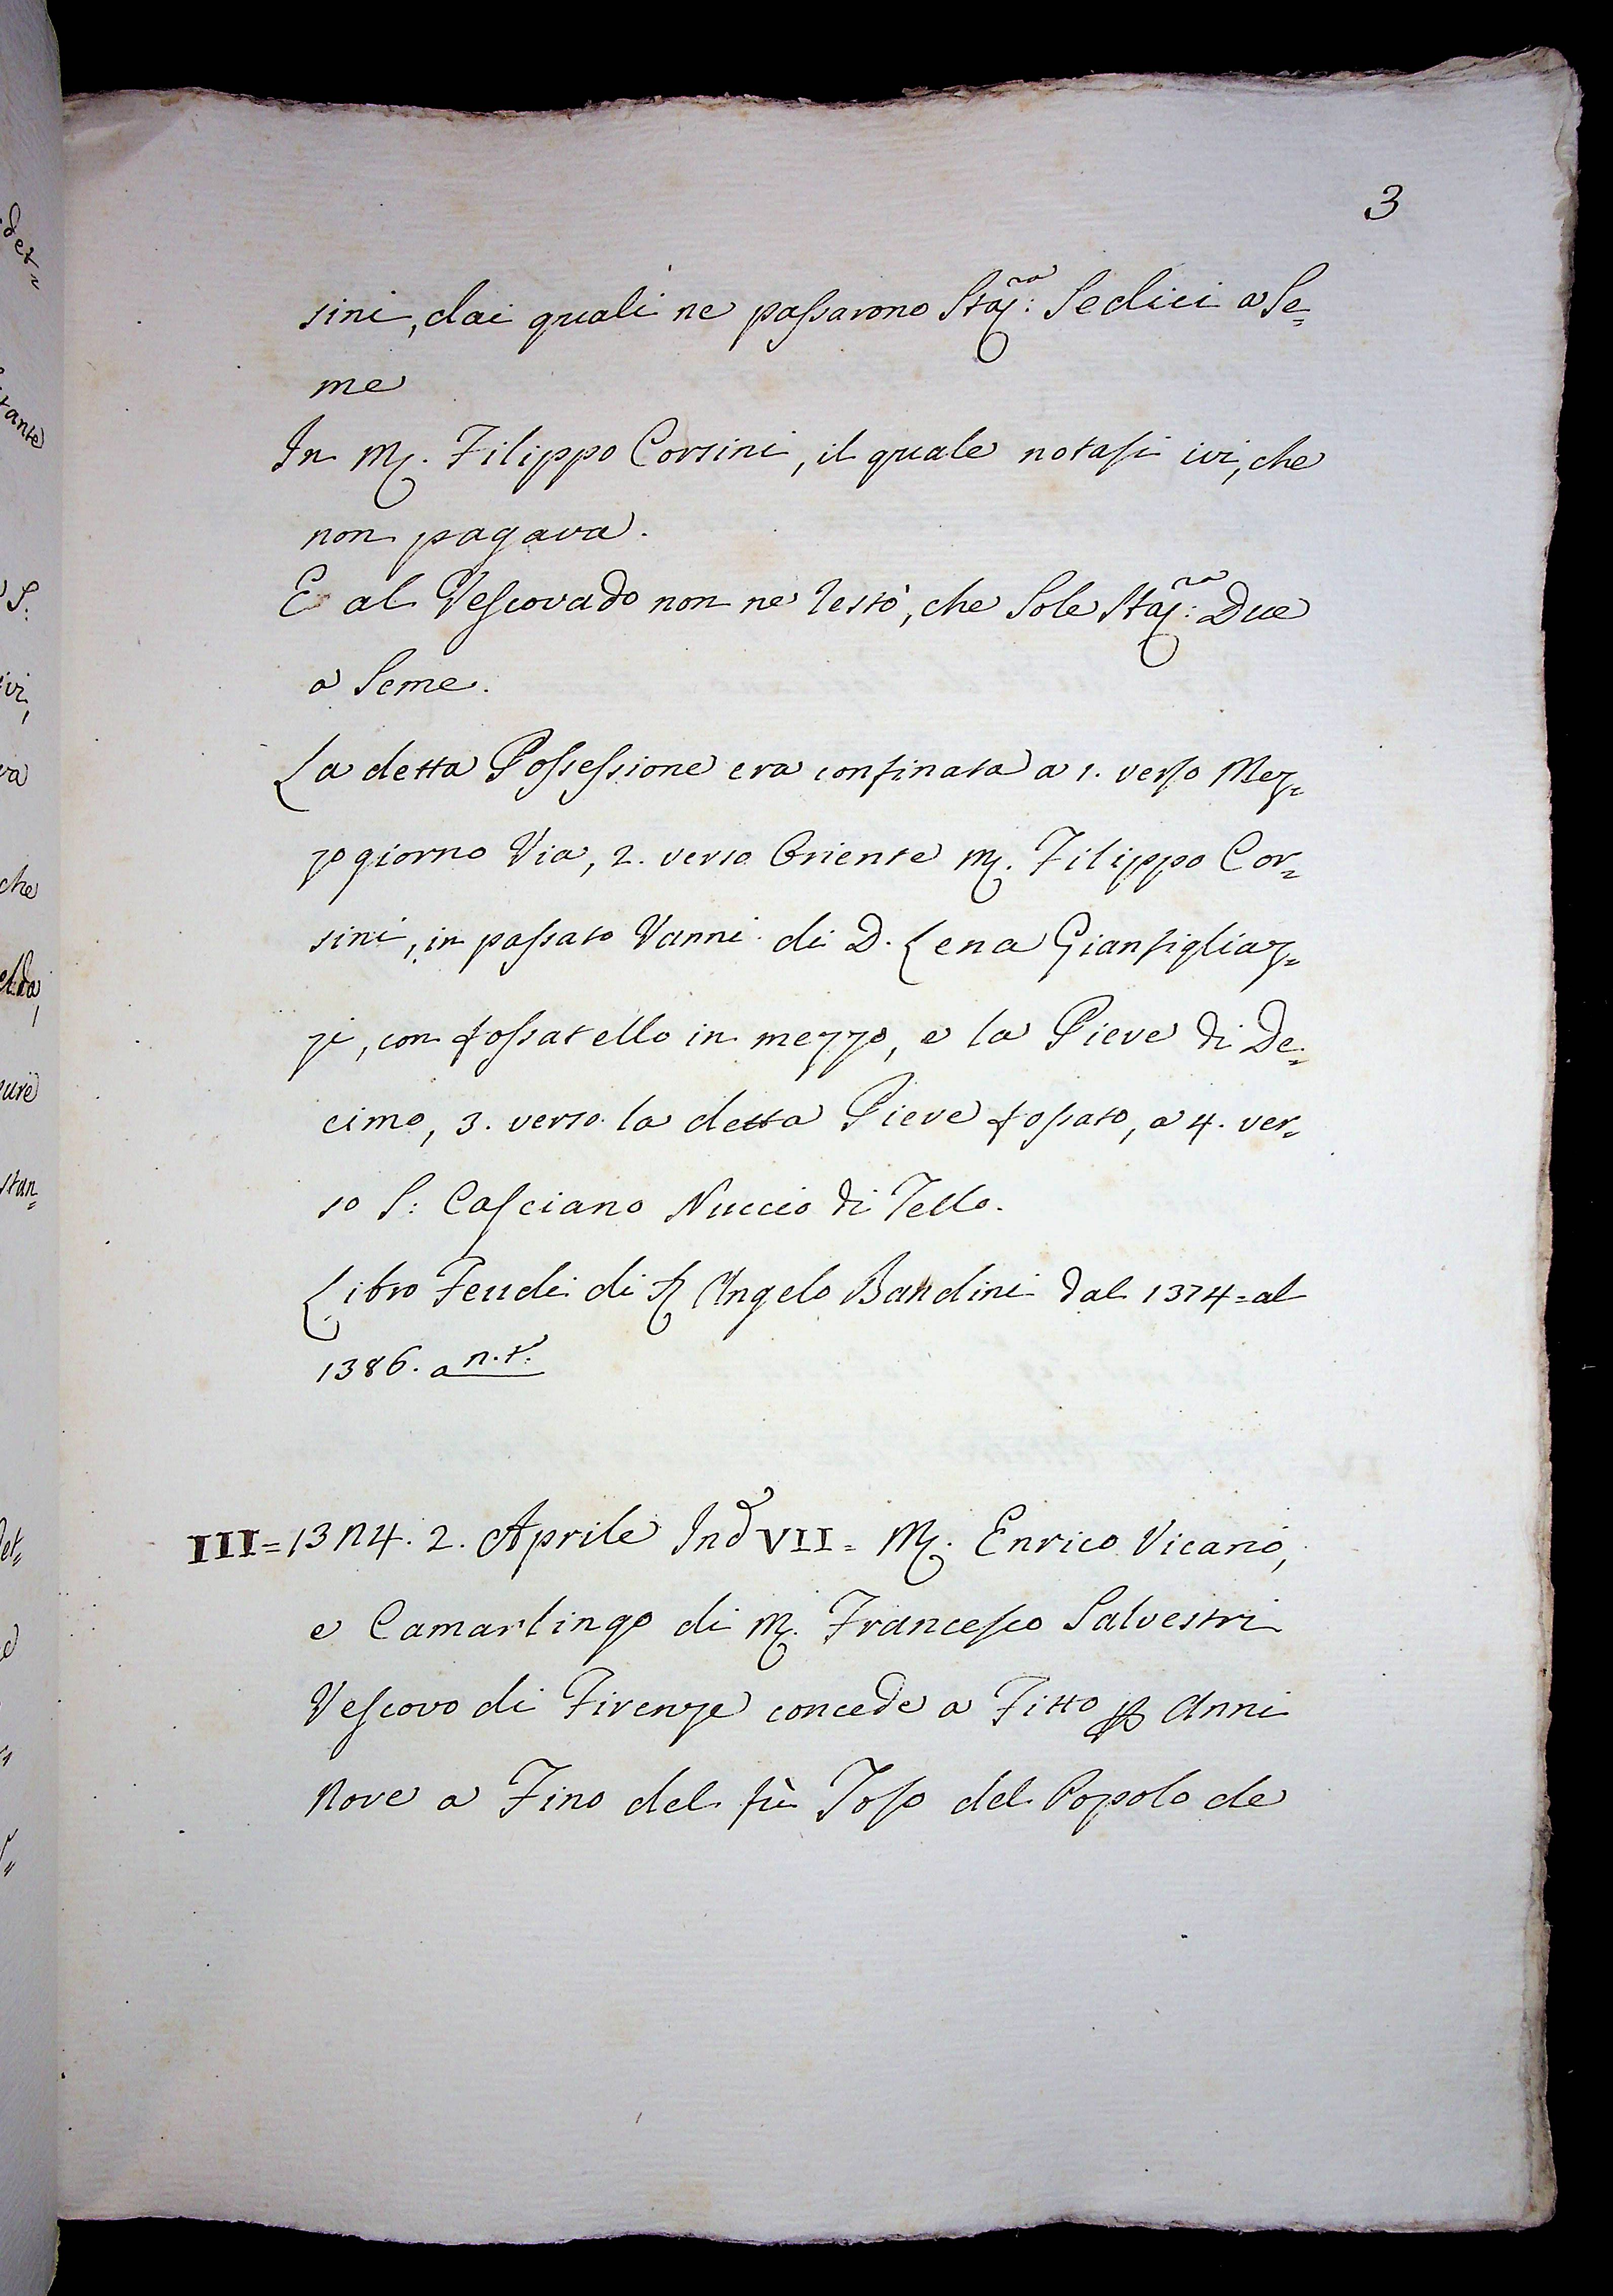 3
sini, dai quali ne passarono Staj:ra Sedici a Se=
me
In M. Filippo Corsini, il quale notasi ivi, che
non pagava.
E al Vescovado non ne restò, che Sole Staj:ra Due
a Seme.
La detta Possessione era confinata a 1. verso Mez=
zogiorno Via, 2. verso Oriente M. Filippo Cor=
sini, in passato Vanni di D. Lena Gianfigliaz=
zi, con fossatello in mezzo, e la Pieve di De=
cimo, 3. verso la detta Pieve fossato, a 4. ver=
so S: Casciano Nuccio di Tello.
Libro Feudi di Angelo Bandini dal 1374 = al
1386. a n.r.
III = 1374. 2. Aprile Ind VII = M. Enrico Vicario,
e Camarlingo di M. Francesco Salvestri
Vescovo di Firenze concede a Fitto p Anni
Nove a Fino del fù Toso del Popolo de